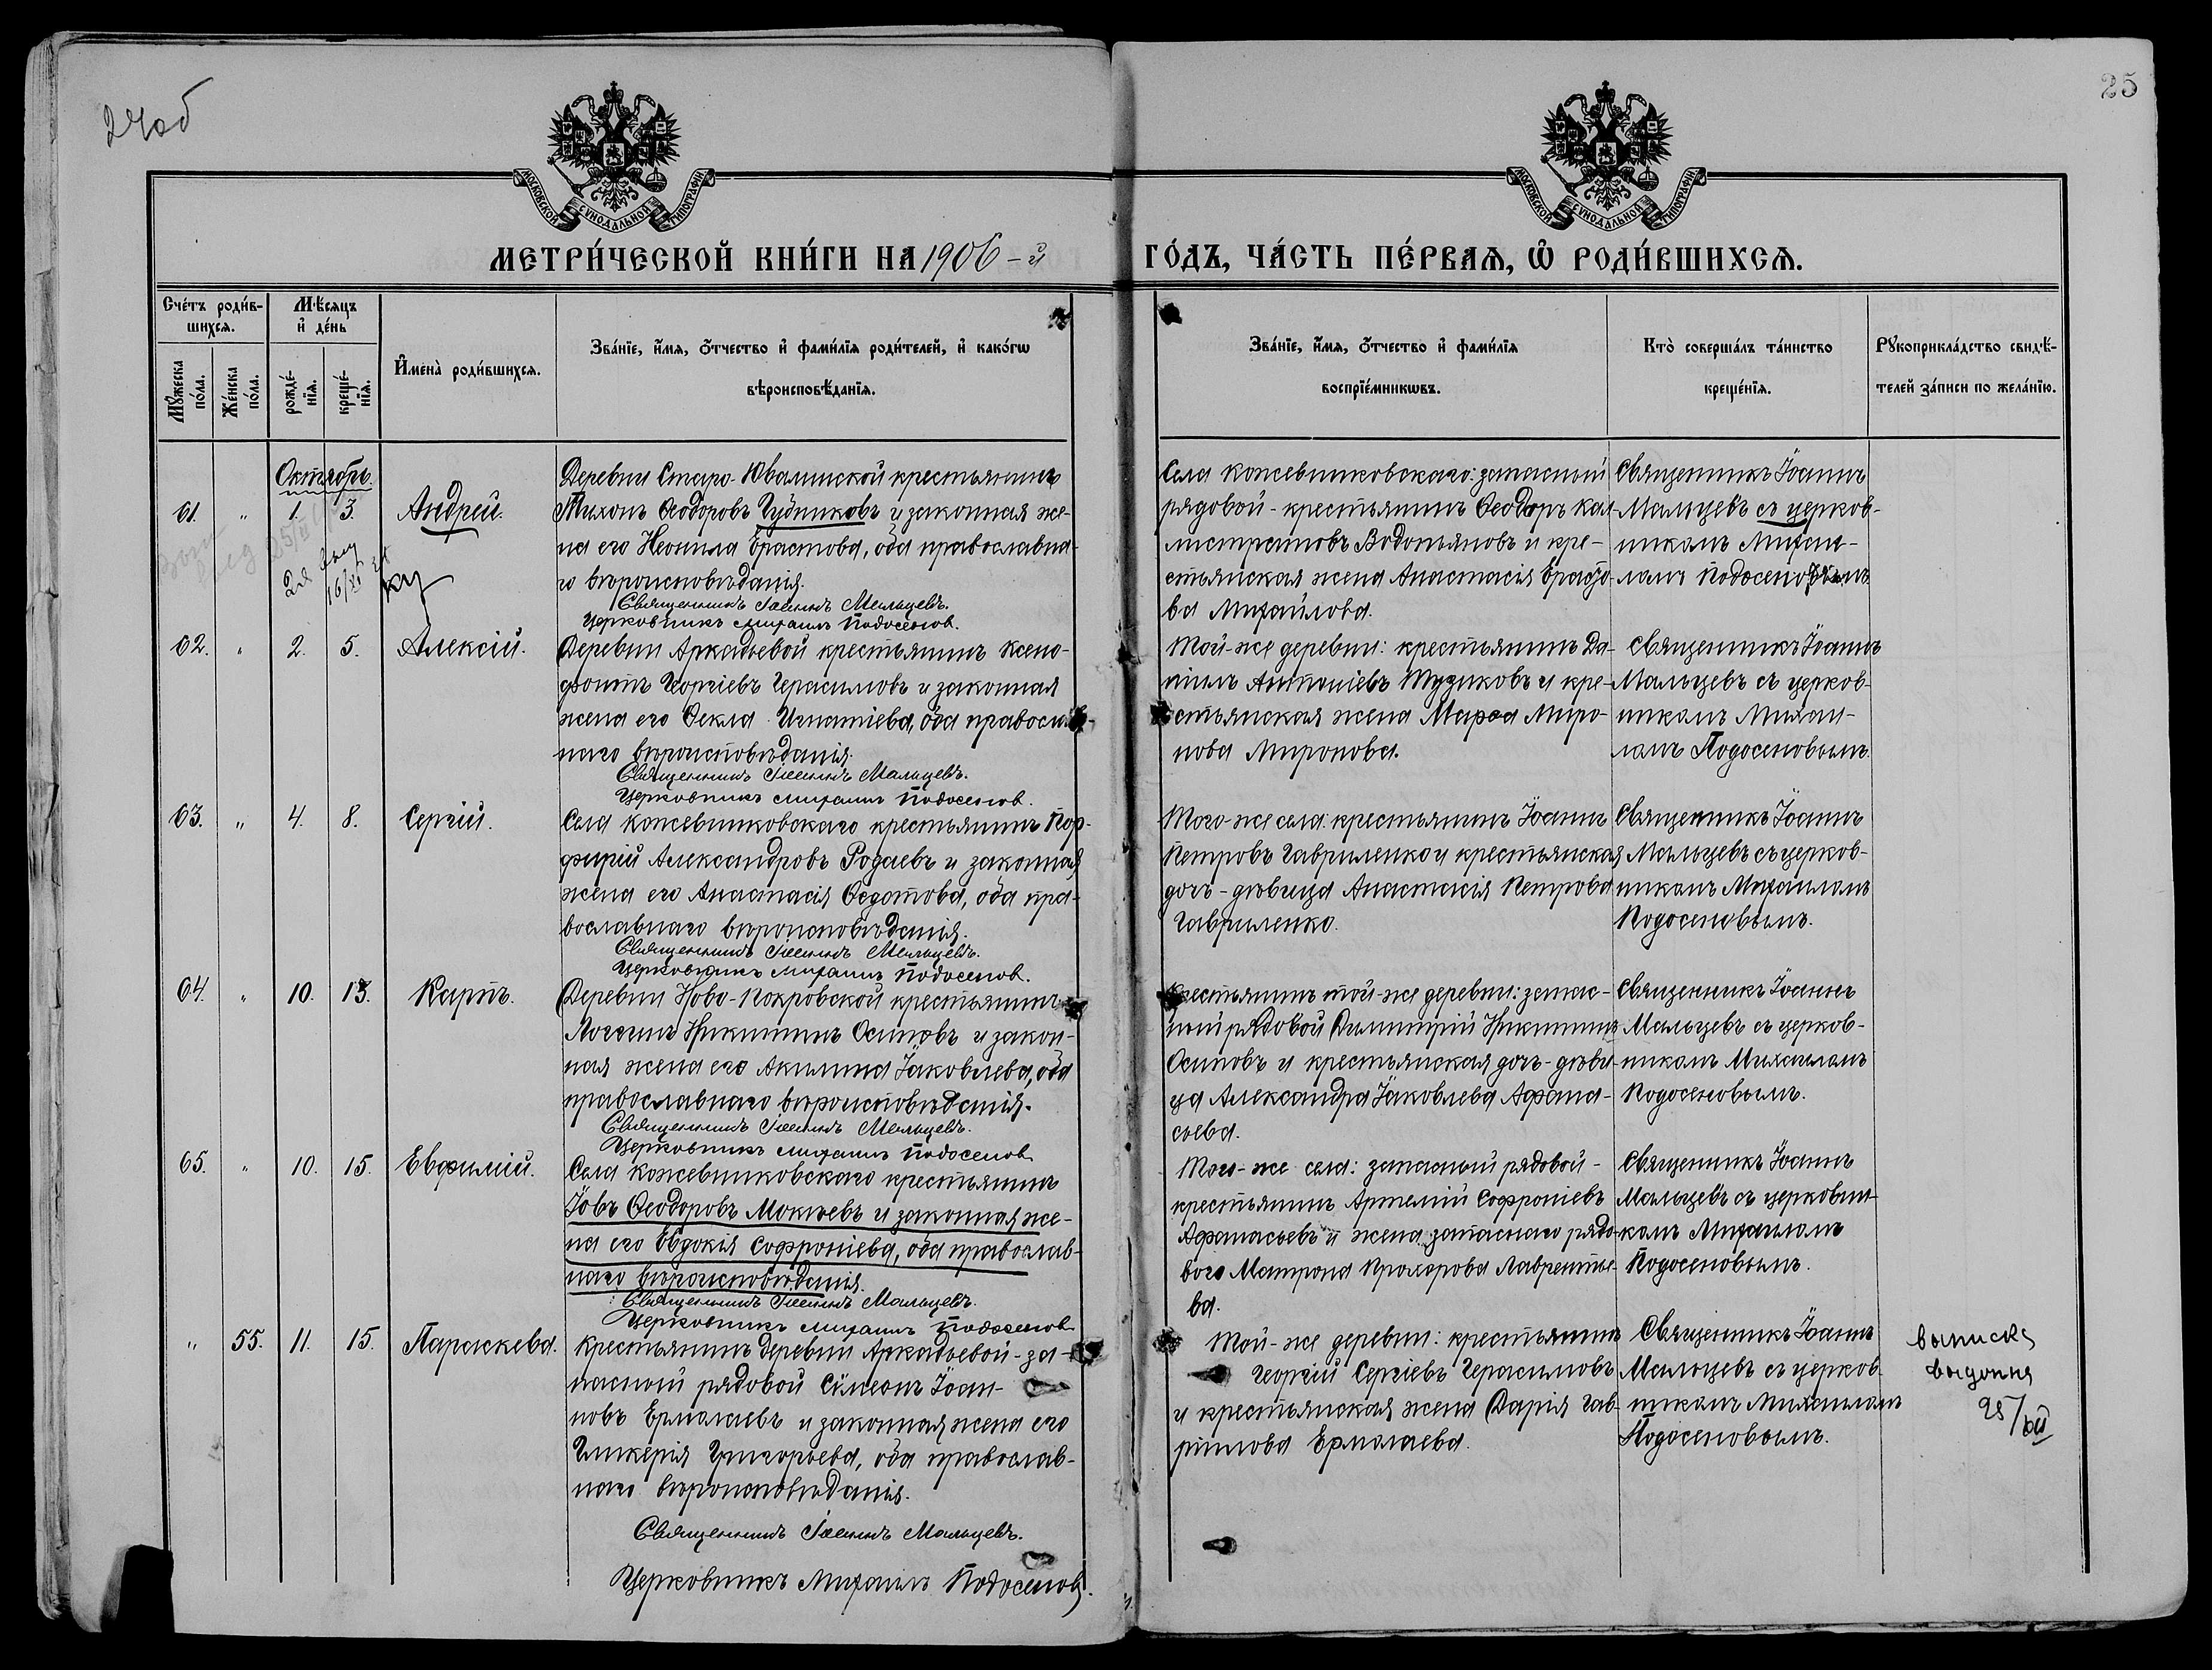 24об
25
МОСКОВСКОЙ СѴНОДАЛЬНОЙ ТИПОГРАФІИ
МОСКОВСКОЙ СѴНОДАЛЬНОЙ ТИПОГРАФІИ
МЕТРИ́ЧЕСКОЙ КНИ́ГИ НА 1906-й
ГО́ДЪ, ЧА́СТЬ ПЕ́РВАѦ, Ѽ РОДИ́ВШИХСѦ.
Сче́тъ роди́в-
шихсѧ.
Мꙋ́жеска по́ла.
Же́нска по́ла.
Мѣ́сѧцъ
и҆ де́нь
рожде́-
нїѧ.
креще́-
нїѧ.
И҆мена̀ роди́вшихсѧ.
Зва́нїе, и҆́мѧ, ѻ҆́тчество и҆ фами́лїѧ роди́телей, и҆ како́гѡ
вѣроисповѣ́данїѧ.
Зва́нїе, и҆́мѧ, ѻ҆́тчество и҆ фами́лїѧ
воспрїе́мникѡвъ.
Кто̀ соверша́лъ та́инство
креще́нїѧ.
Рꙋкоприкла́дство свидѣ́-
телей за́писи по жела́нїю.
Октябрь.
61. " 1. 3. Андрей.
Деревни Старо-Ювалинской крестьянинъ
Тихонъ Ѳеодоровъ Чудниковъ и законная же-
на его Неонила Ерастова, оба православна-
го вѣроисповѣданія.
Священникъ Іоаннъ Мальцевъ.
Церковникъ Михаилъ Подосенов.
Села Кожевниковскаго: запасный
рядовой - крестьянинъ Ѳеодоръ Кал-
листратовъ Водопьяновъ и кре-
стьянская жена Анастасія Ерасто-
ва Михайлова.
Священникъ Іоаннъ
Мальцевъ съ церков-
никомъ Михаи-
ломъ Подосеновымъ.
62. " 2. 5. Алексій.
Деревни Аркадьевой крестьянинъ Ксено-
фонтъ Георгіевъ Герасимовъ и законная
жена его Ѳекла Игнатіева, оба правосла-
наго вѣроисповѣданія.
Священникъ Іоаннъ Мальцевъ.
Церковникъ Михаилъ Подосенов.
Той-же деревни: крестьянинъ Да-
ніилъ Антоніевъ Тузиковъ и кре-
стьянская жена Марѳа Миро-
нова Миронова.
Священникъ Іоаннъ
Мальцевъ съ церков-
никомъ Михаи-
ломъ Подосеновымъ.
63. " 4. 8. Сергій.
Села Кожевниковскаго крестьянинъ Пор-
фирій Александровъ Родаевъ и законная
жена его Анастасія Ѳедотова, оба пра-
вославнаго вѣроисповѣданія.
Священникъ Іоаннъ Мальцевъ.
Церковникъ Михаилъ Подосенов.
Того-же села: крестьянинъ Іоаннъ
Петровъ Гавриленко и крестьянская
дочь-дѣвица Анастасія Петрова
Гавриленко.
Священникъ Іоаннъ
Мальцевъ съ церков-
никомъ Михаиломъ
Подосеновымъ.
64. " 10. 13. Карпъ.
Деревни Ново-Покровской крестьянинъ
Логгинъ Никитинъ Осиповъ и закон-
ная жена его Акилина Іаковлева, оба
православнаго вѣроисповѣданія.
Священникъ Іоаннъ Мальцевъ.
Церковникъ Михаилъ Подосенов
Крестьянинъ той-же деревни: запас-
ный рядовой Димитрій Никитинъ
Осиповъ и крестьянская дочь-дѣви-
ца Александра Іаковлева Афана-
сьева.
Священникъ Іоаннъ
Мальцевъ съ церков-
никомъ Михаиломъ
Подосеновымъ.
65. " 10. 15. Евфимій.
Села Кожевниковскаго крестьянинъ
Іовъ Ѳеодоровъ Мокѣевъ и законная же-
на его Евдокія Софроніева, оба православ-
наго вѣроисповѣданія.
Священникъ Іоаннъ Мальцевъ.
Церковникъ Михаилъ Подосенов
Того-же села: запасный рядовой -
крестьянинъ Артемій Софроніевъ
Афанасьевъ и жена запаснаго рядо-
вого Матрона Прохорова Лавренть-
ва.
Священникъ Іоаннъ
Мальцевъ съ церковни-
комъ Михаиломъ
Подосеновымъ.
" 55. 11. 15. Параскева.
Крестьянинъ деревни Аркадьевой - за-
пасный рядовой Сѵмеонъ Іоан-
новъ Ермолаевъ и законная жена его
Гликерія Григорьева, оба православ-
наго вѣроисповѣданія.
Священникъ Іоаннъ Мальцевъ.
Церковникъ Михаилъ Подосенов.
Той-же деревни: крестьянинъ
Георгій Сергіевъ Герасимовъ
и крестьянская жена Дарія Гав-
риилова Ермолаева.
Священникъ Іоаннъ
Мальцевъ съ церков-
никомъ Михаиломъ
Подосеновымъ.
выписка
выдана